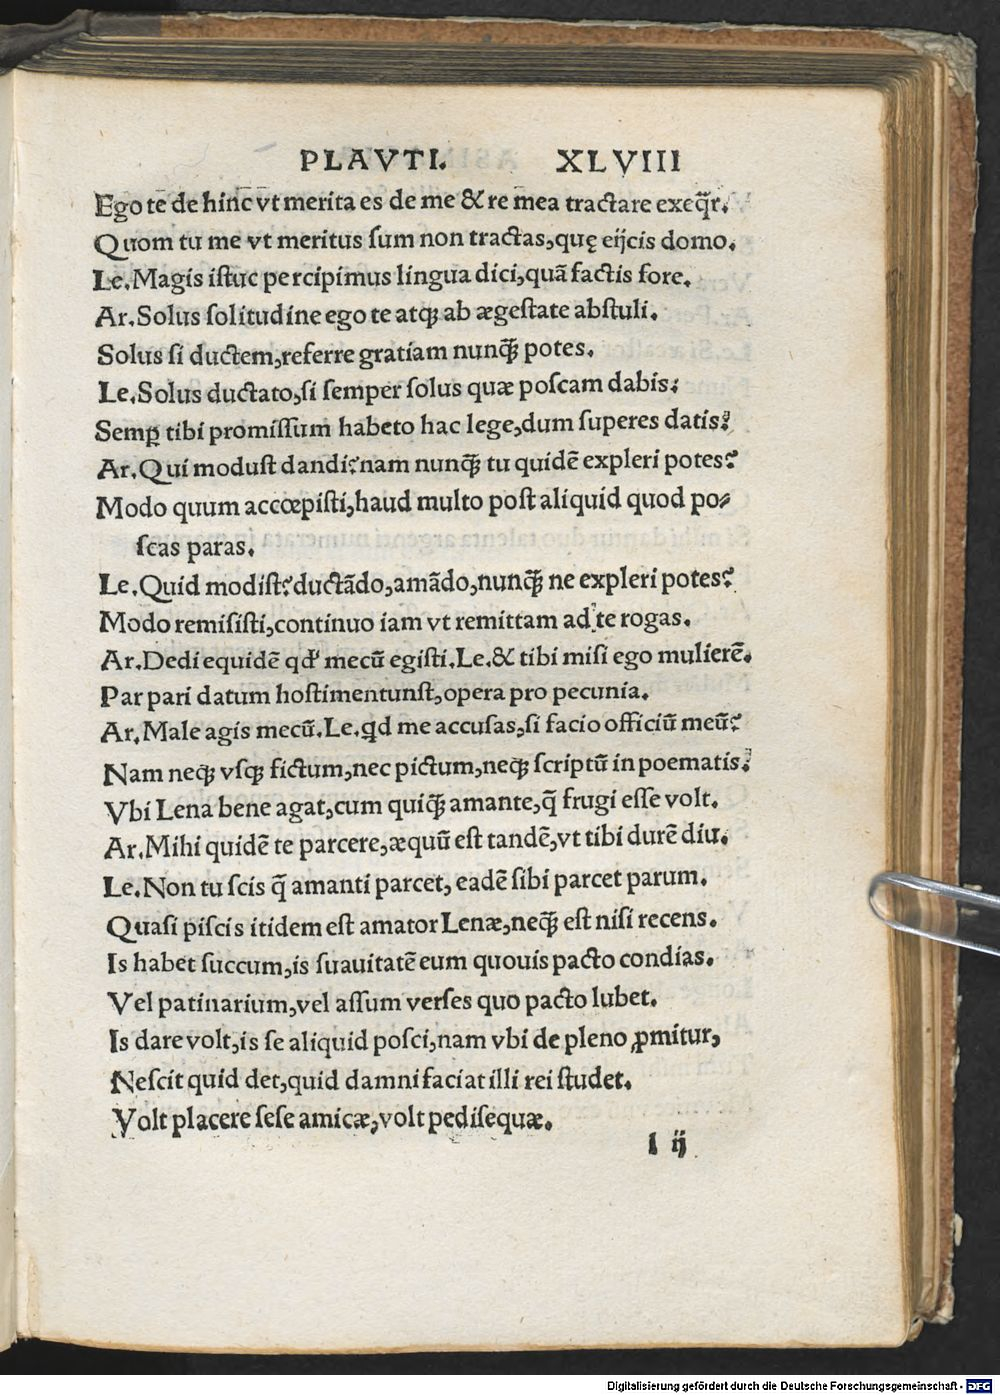 PLAVTI. XLVIII
Ego te̅ de hinc̅ vt̅ merita es de me & re mea tractare exeq̅r.
Quom tu me vt meritus ſum non tractas,quę eijcis domo.
Le.Magis iſtuc percipimus lingua dici,quã factis fore.
Ar.Solus ſolitudine ego te atqꝫ ab ægeſtate abſtuli.
Solus ſi ductem,referre gratiam nunqꝫ̃ potes.
Le.Solus ductato,ſi ſemper ſolus quæ poſcam dabis:
Semꝑ tibi promiſſum habeto hac lege,dum ſuperes datis?
Ar.Qui moduſt dandi?nam nunqꝫ̃ tu quidẽ expleri potes?
Modo quum accœpiſti,haud multo poſt aliquid quod po⸗
ſcas paras.
Le.Quid modiſt?ductãdo,amãdo,nunqꝫ̃ ne expleri potes?
Modo remiſiſti,continuo iam vt remittam ad te rogas.
Ar.Dedi equidẽ qd' mecũ egiſti.Le.& tibi miſi ego mulierẽ.
Par pari datum hoſtimentunſt,opera pro pecunia.
Ar.Male agis mecũ.Le.ꝗd me accuſas,ſi facio officiũ meũ?
Nam neqꝫ vſqꝫ fictum,nec pictum,neqꝫ ſcriptũ in poematis?
Vbi Lena bene agat,cum quiqꝫ̃ amante,q̃ frugi eſſe volt.
Ar.Mihi quidẽ te parcere,æquũ eſt tandẽ,vt tibi durẽ diu.
Le.Non tu ſcis q̃ amanti parcet, eadẽ ſibi parcet parum.
Quaſi piſcis itidem eſt amator Lenæ,neqꝫ̃ eſt niſi recens.
Is habet ſuccum,is ſuauitatẽ eum quouis pacto condias.
Vel patinarium,vel aſſum verſes quo pacto lubet.
Is dare volt,is ſe aliquid poſci,nam vbi de pleno ꝓmitur,
Neſcit quid det,quid damni faciat illi rei ſtudet.
Volt placere ſeſe amicæ,volt pediſequæ.
l ij
Digitalisierung gefördert durch die Deutsche Forschungsgemeinschaft - DFG